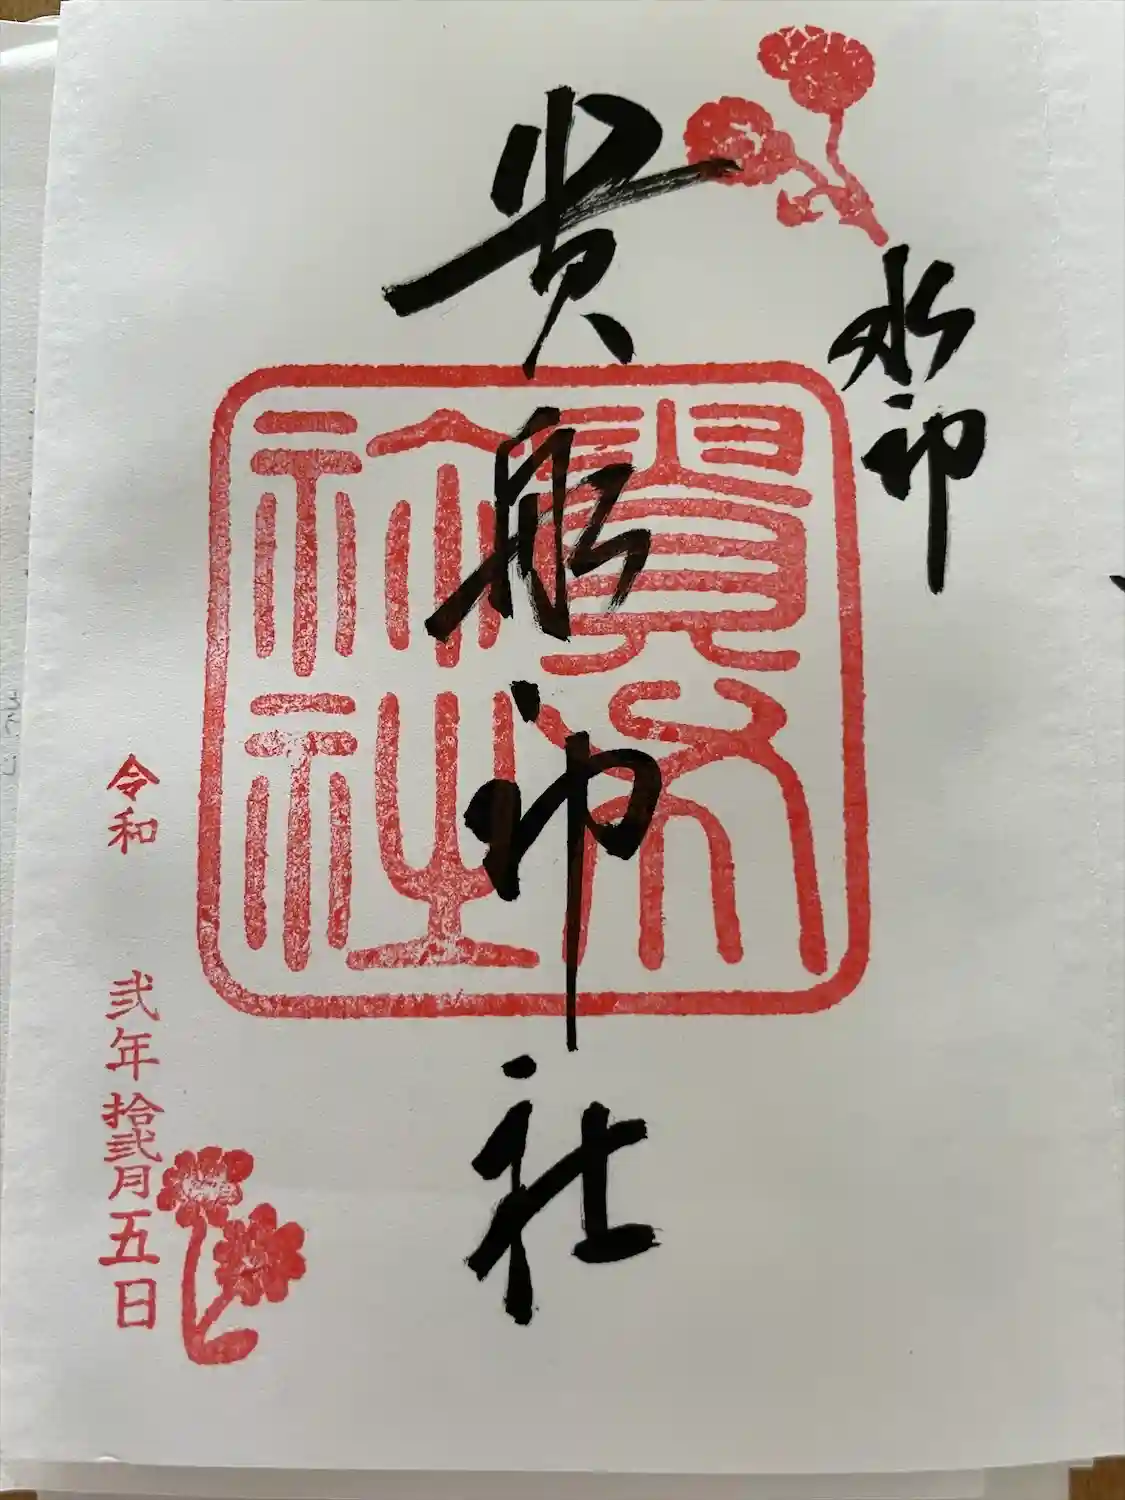 水神
貴船神社
貴布祢社
令和 弐年拾弐月五日